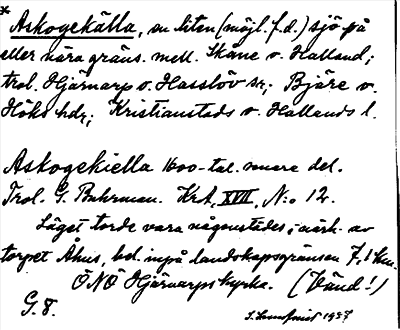 * Askogekälla, en liten (möjl. f.d.) sjö på
eller nära gräns. mell. Skåne o. Halland;
trol. Hjärnarp o. Hasslöv snr; Bjäre o.
Höks hdr; Kristianstads o. Hallands l.
Askogekiella 1600-tal. senare del.
Trol. G. Buhrman. Krt, XVII, N:o 12.
Läget torde vara någonstädes i närh. av
torpet Åhus, bel. inpå landskapsgränsen 7,1 km.
ÖNÖ Hjärnarps kyrka. (Vänd!)
G. 8.
1937